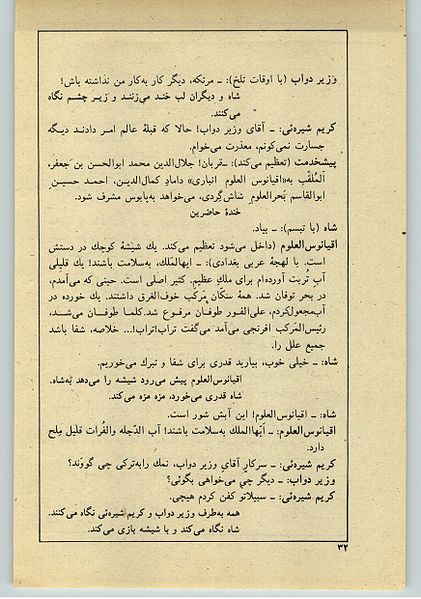 وزیر دواب (با اوقات تلخ): ـ مرتکه، دیگر کار به‌کار من نداشته باش!
شاه و دیگران لب خند می‌زنند و زیر چشم نگاه
می‌کنند.
کریم شیره‌ئی: ـ آقای وزیر دواب! حالا که قبلهٔ عالم امر دادند دیگه
جسارت نمی‌کونم، معذرت می‌خوام.
پیشخدمت (تعظیم می‌کند): ـ قربان! جلال‌الدین محمد ابوالحسن بن جعفر،
المُلقّب به «اقیانوس العلوم انباری» دامادِ کمال‌الدین، احمد حسین
ابوالقاسم بَحرالعلوم شاش‌گِردی، می‌خواهد به‌پابوس مشرف شود.
خندهٔ حاضرین
شاه (با تبسم): ـ بیاد.
اقیانوس‌العلوم (داخل می‌شود تعظیم می‌کند. یك شیشهٔ کوچك در دستش
است. با لهجهٔ عربی بغدادی): ـ ایهالملك، به‌سلامت باشند! یك قلیلی
آب تُربت آورده‌ام برای ملكِ عظیم. کثیر اصلی است. حینی که می‌آمدم،
در بحر توفان شد. همهٔ سکّان مَرکب خوف‌الغرق داشتند. یك خورده در
آب‌مجعول‌کردم، علی‌الفور طوفان مرفوع شد. کلما طوفان می‌شد،
رئیس‌المَرکب افرنجی می‌آمد می‌گفت تراب‌اتراب!... خلاصه، شفا باشد
جمیع علل را.
شاه: ـ خیلی خوب، بیارید قدری برای شفا و تبرك می‌خوریم.
اقیانوس‌العلوم پیش می‌رود شیشه را می‌دهد به‌شاه.
شاه قدری می‌خورد، مزه مزه می‌کند.
شاه: ـ اقیانوس‌العلوم! این آبش شور است.
اقیانوس‌العلوم: ـ اَیّهاالملك به‌سلامت باشند! آب الدّجله والفُرات قلیل مِلح
دارد.
کریم شیره‌ئی: ـ سرکار آقایِ وزیر دواب، نمك رابه‌ترکی چی گووَند؟
وزیر دواب: ـ دیگر چی می‌خواهی بگوئی؟
کریم شیره‌ئی: ـ سبیلاتو کفن کردم هیچی.
همه به‌طرف وزیر دواب و کریم شیره‌ئی نگاه می‌کنند.
شاه نگاه می‌کند و با شیشه بازی می‌کند.
۳۲